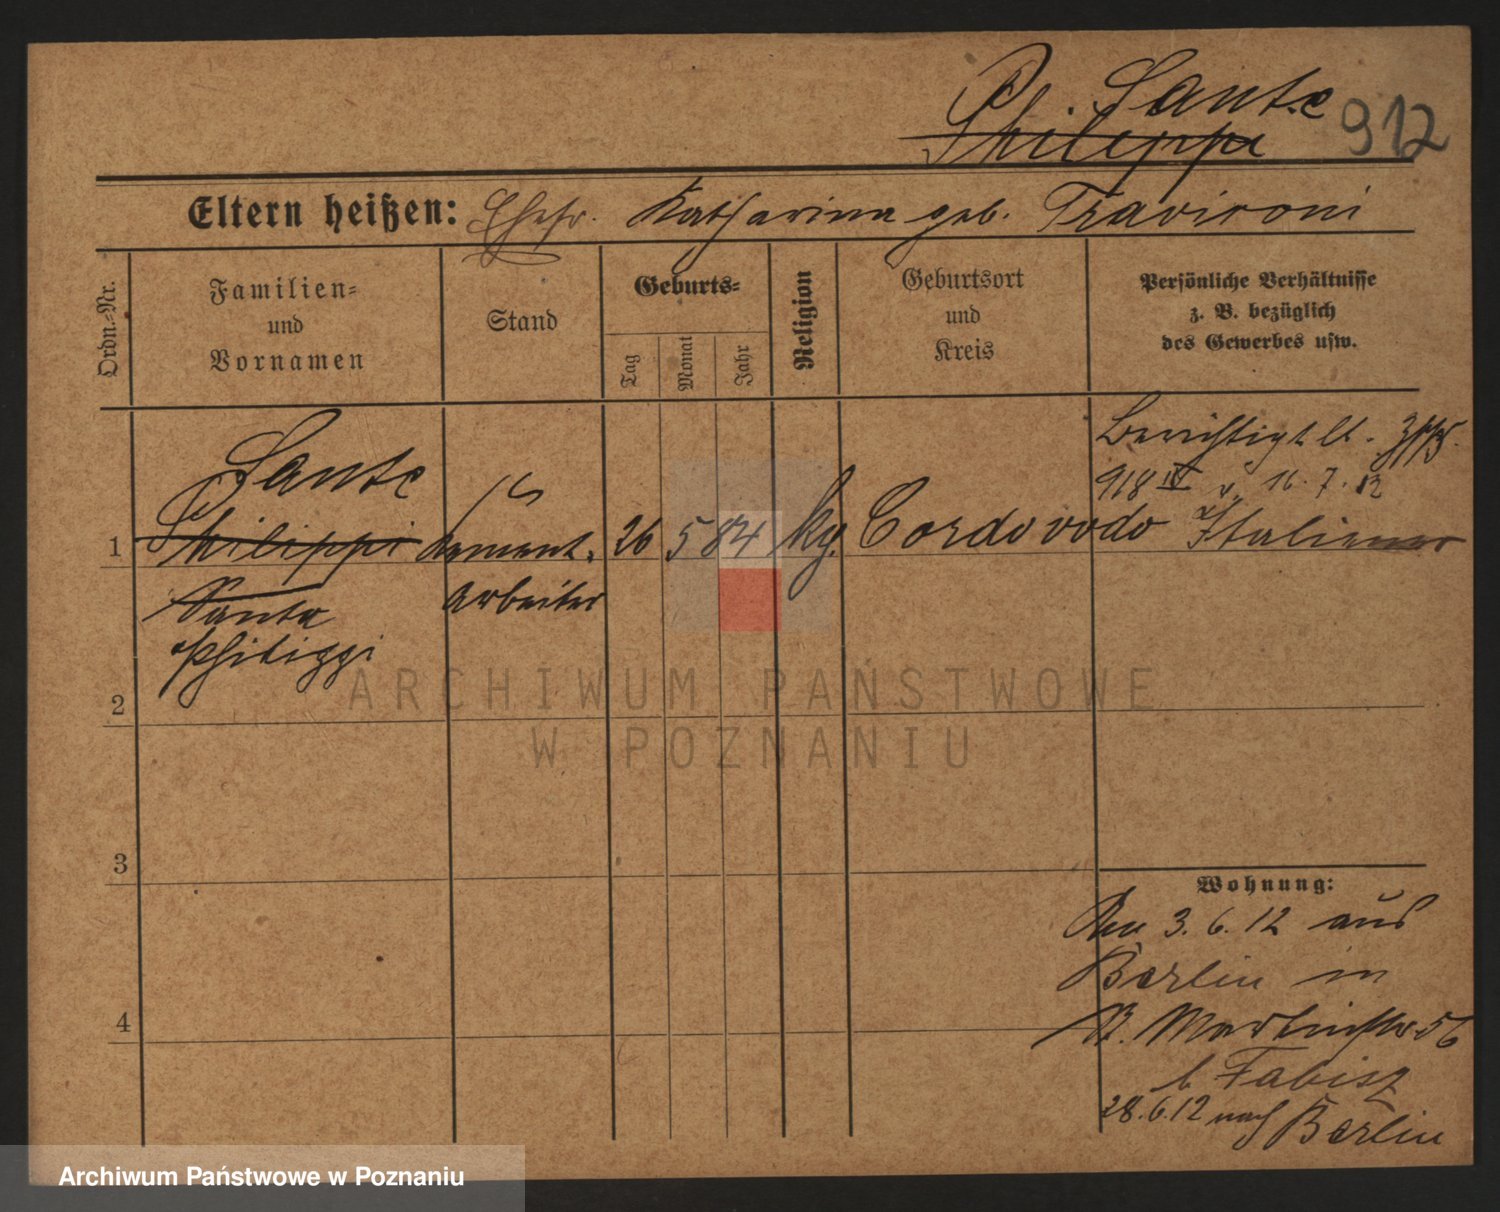 Ph. Sante
Philippi 912
Eltern heißen: Ehefr. Katharina geb. Travironi
Ordn.-Nr.
Familien-
und
Vornamen
Stand
Geburts-
Tag
Monat
Jahr
Religion
Geburtsort
und
Kreis
Persönliche Verhältnisse
z. B. bezüglich
des Gewerbes usw.
Berichtigt lt.
918 IV v. 16. 7. 12
Sante
1 Philippi Zement- 26 5 84 kg. Cordovodo Italiener
Sante arbeiter
Philippi
2
3
4
Wohnung:
Am 3. 6. 12 aus
Berlin in
Martinstr. 56
b. Fabisz
28. 6. 12 nach Berlin
ARCHIWUM PAŃSTWOWE
W POZNANIU
Archiwum Państwowe w Poznaniu